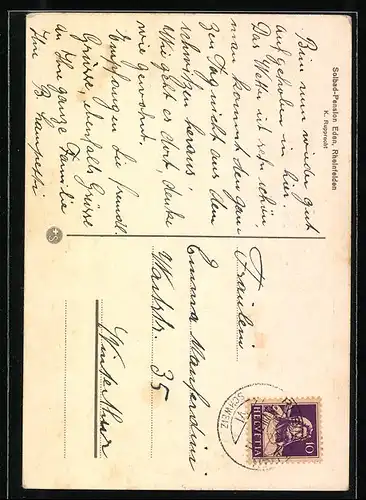 Solbad-Pension Eden, Rheinfelden
K. Rupprecht
Bin nun wieder gut
aufgehoben in hier
Das Wetter ist sehr schön,
man kommt den ganzen
Tag nicht aus dem
schwitzen heraus!
Wie geht es dort, denke
wie gewohnt.
Empfangen Sie freundl.
Grüsse, ebenfalls Grüsse
an Ihre ganze Familie
Ihre B.
Fräulein
Emma Manferdini
Wartstr. 35
Winterthur
SCHWEIZ
HELVETIA
10